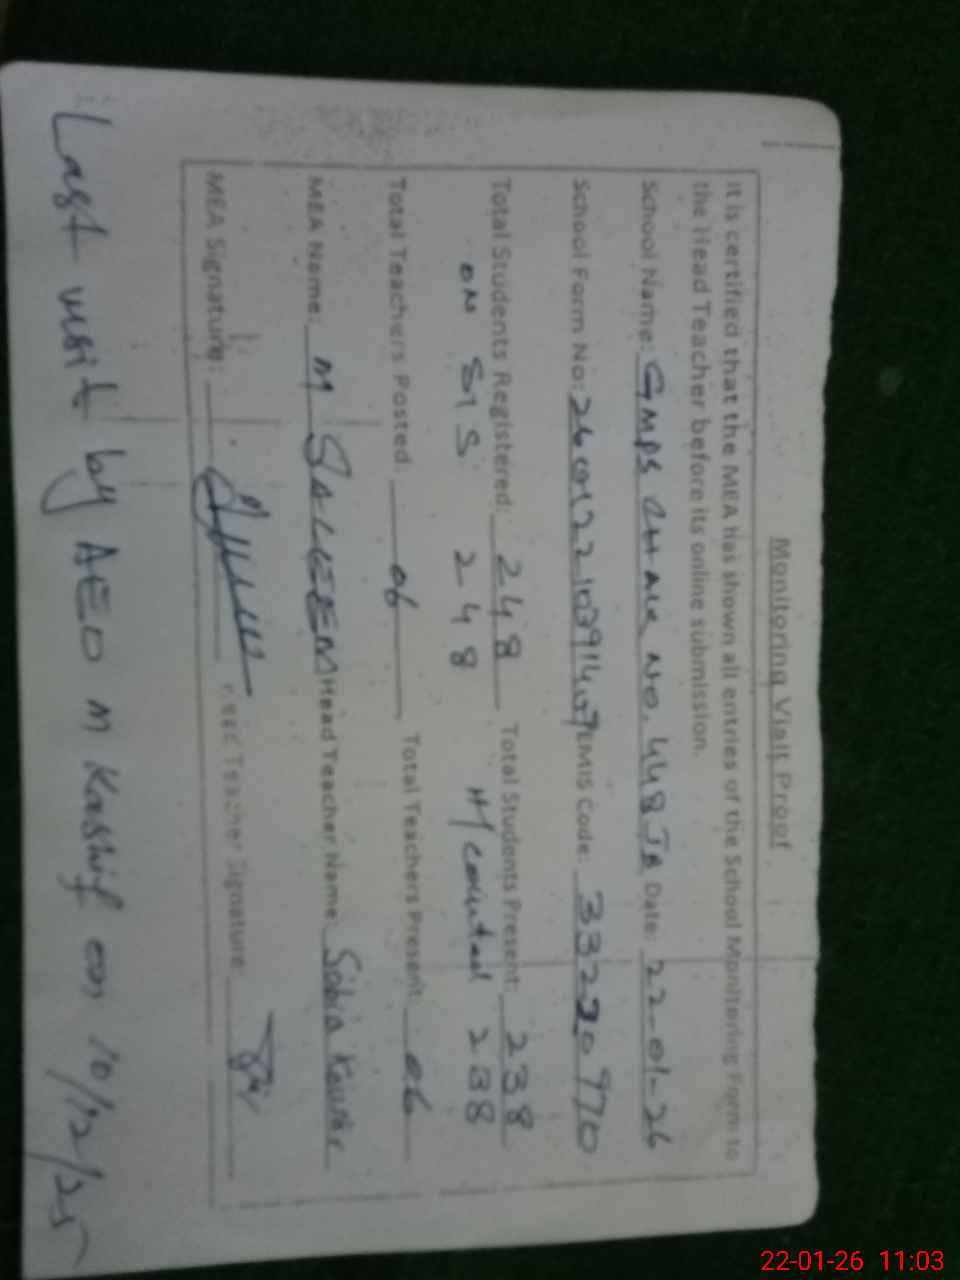 Monitoring Visit Proof
It is certified that the MEA has shown all entries of the School Monitoring Form to
the Head Teacher before its online submission.
School Name: GMPS CHAK NO. 448 JB Date: 22-01-26
School Form No: EMIS Code: 33220970
Total Students Registered: 248 Total Students Present: 238
ON SIS 248 H/counted 238
Total Teachers Posted: 06 Total Teachers Present: 06
MEA Name: M SALEEM Head Teacher Name: Sobia Kausar
MEA Signature: Head Teacher Signature:
Last visit by AEO M Kashif on 10/12/25
22-01-26 11:03